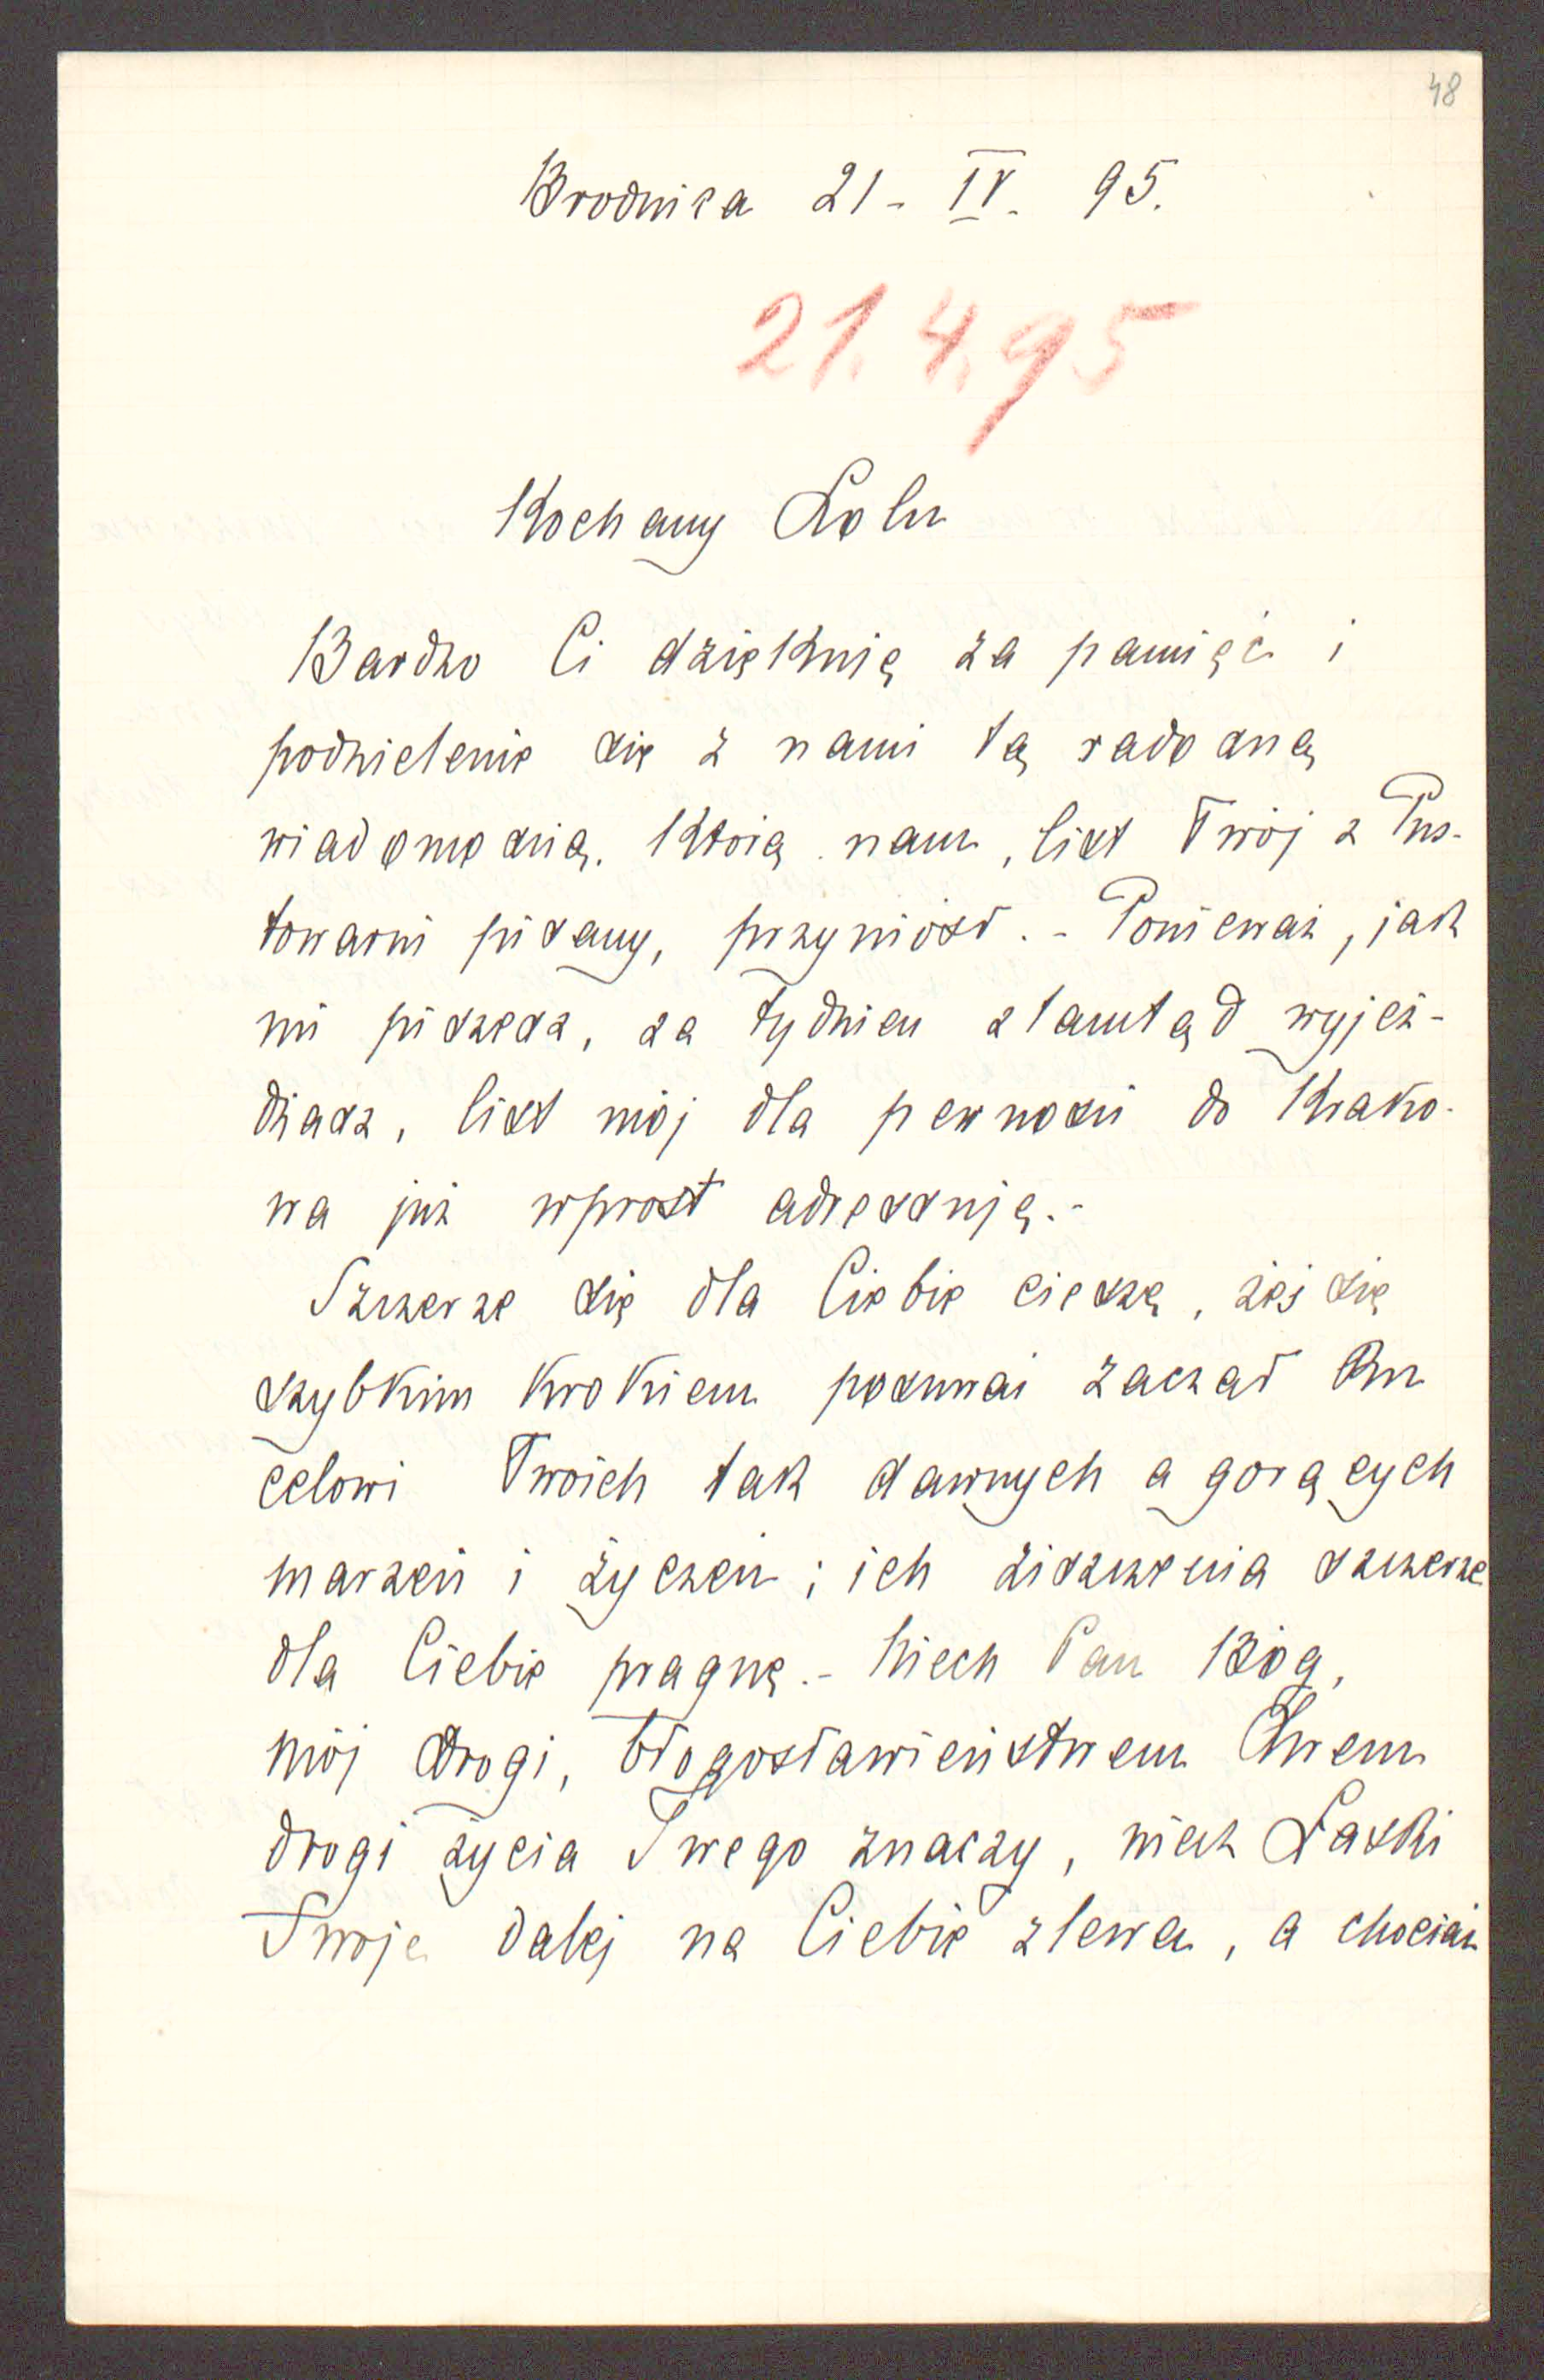 48
Brodnica 21 - IV. 95.
21.4.95
Kochany Lolu
Bardzo Ci dziękuję za pamięć i
podzielenie się z nami tą radosną
wiadomością, którą nam, list Twój z Pus-
towarni pisany, przyniósł. - Ponieważ, jak
mi piszesz, za tydzień ztamtąd wyjeż-
dżasz, list mój dla pewności do Krako-
wa już wprost adressuję. -
Szczerze się dla Ciebie cieszę, żeś się
szybkim krokiem posuwać zaczął ku
celowi Twoich tak dawnych a gorących
marzeń i życzeń; ich ziszczenia szczerze
dla Ciebie pragnę. - Niech Pan Bóg,
mój drogi, błogosławieństwem Swem
drogi życia Twego znaczy, niech Łaski
Swoje dalej na Ciebie zlewa, a chociaż